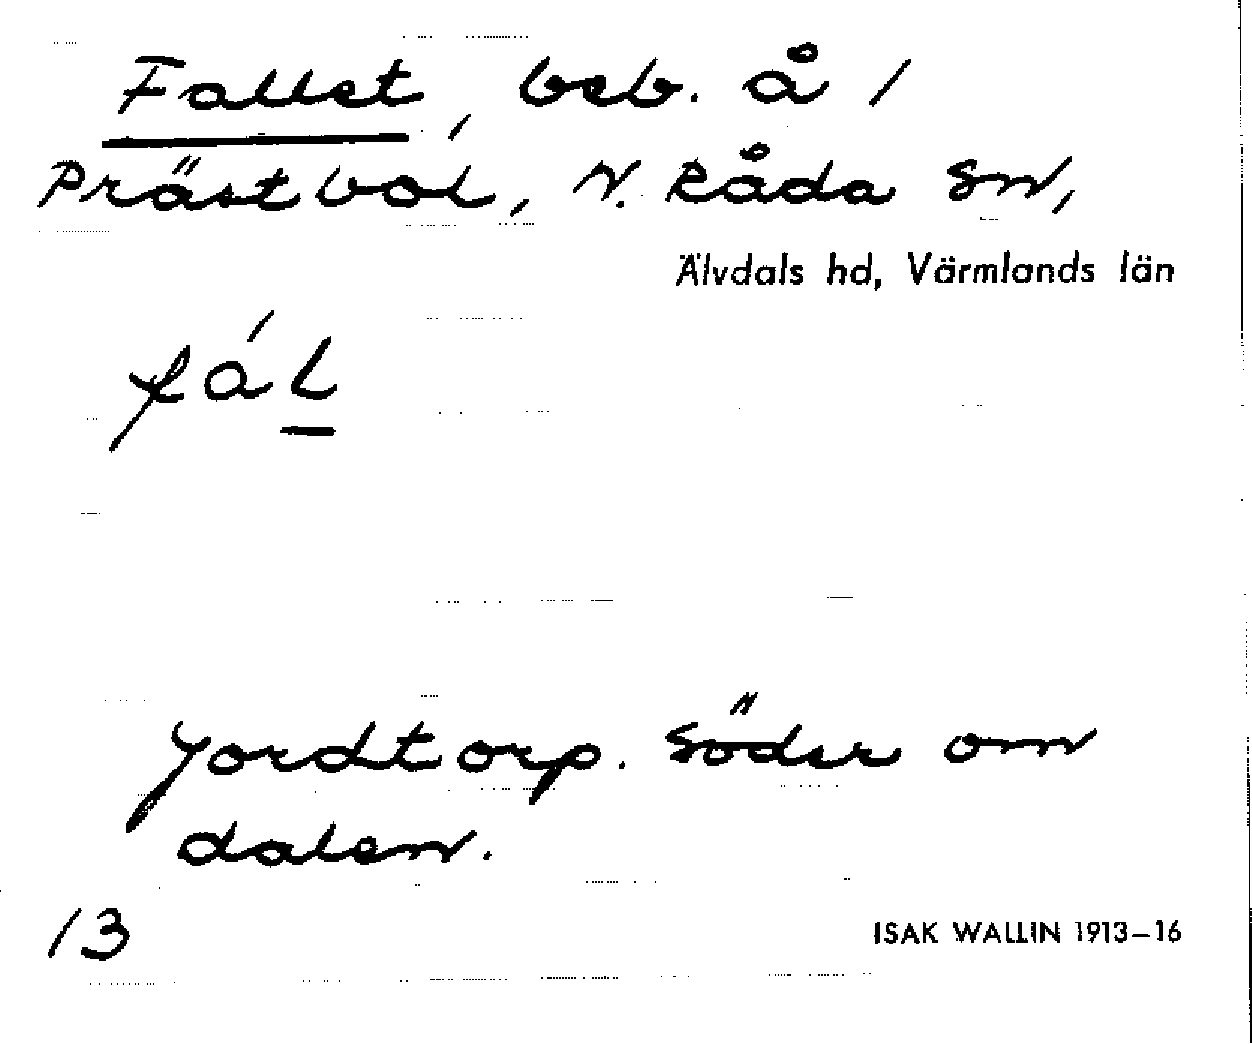 Fallet, beb. å 1
Prästbol, N. Råda sn,
Älvdals hd, Värmlands län
fáḻ
Jordtorp. Söder om
dalen.
13
ISAK WALLIN 1913–16